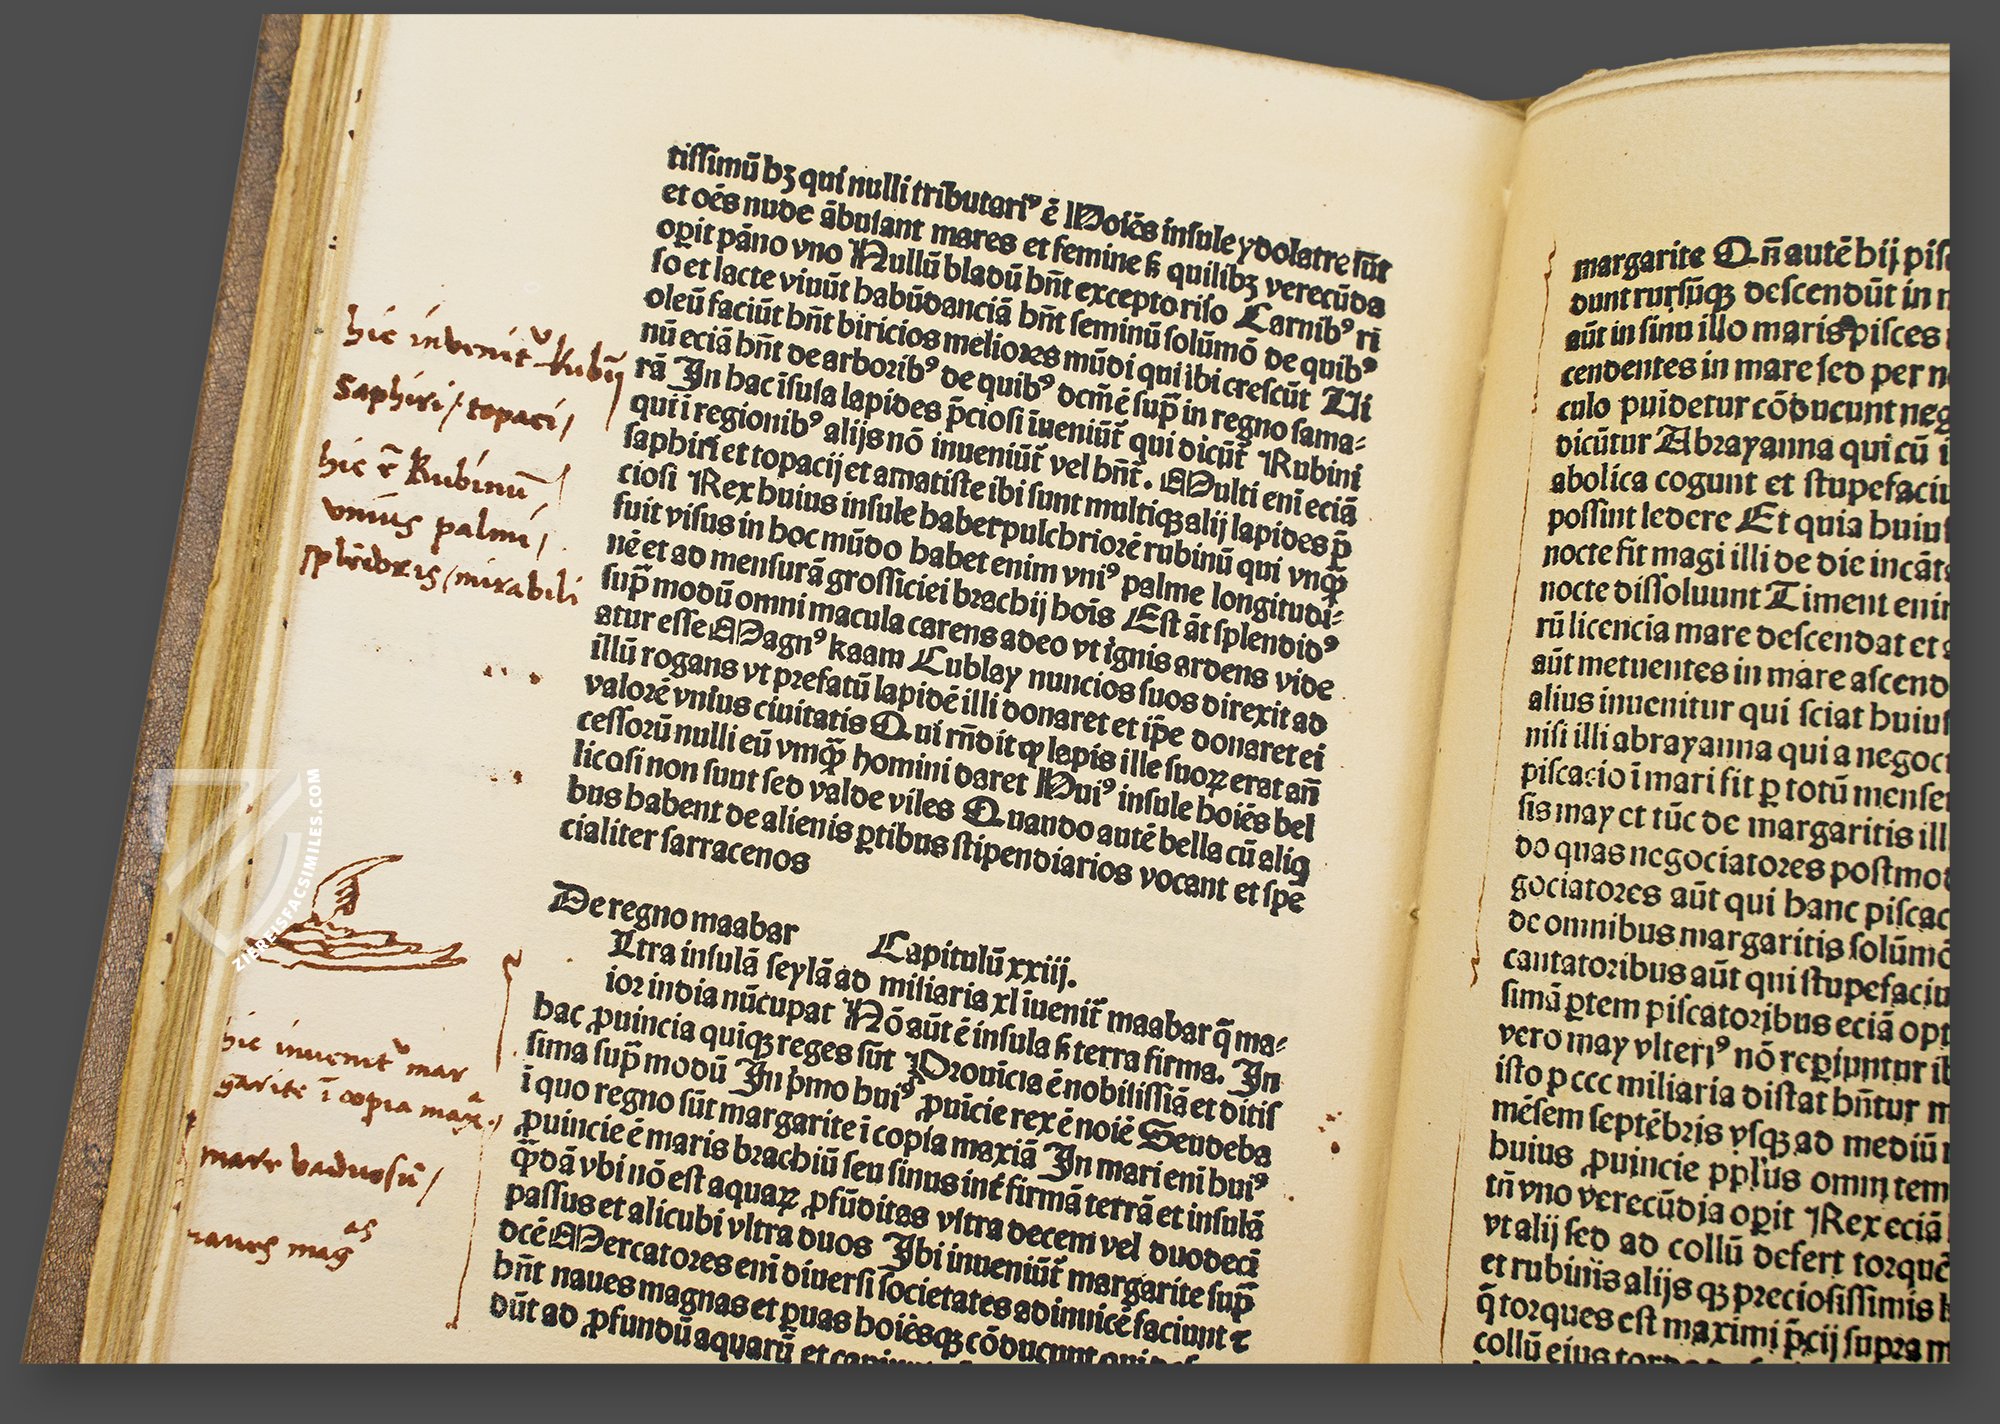 tissimū hꝫ qui nulli tributariꝰ ē Hoiēs insule ydolatre sūt
et oēs nude ābulant mares et femine ꝭ quilibꝫ verecūda
oꝑit pāno vno Nullū bladū hn̄t excepto riso Carnibꝰ ri
so et lacte viuūt habūdanciā hn̄t seminū solūmō de quibꝰ
oleū faciūt hn̄t biricios meliores mūdi qui ibi crescūt Ui
nū eciā hn̄t de arboribꝰ de quibꝰ dcm̄ ē sup̄ in regno sama⸗
rā In hac isula lapides p̄ciosi iueniūt̄ qui dicūt̄ Rubini
qui ī regionibꝰ alijs nō inueniūt̄ vel hn̄t. Multi enī eciā
saphiri et topacij et amatiste ibi sunt multiqꝫ alij lapides p̄
ciosi Rex huius insule habet pulchriorē rubinū qui vnq̄ꝫ
fuit visus in hoc mūdo habet enim vniꝰ palme longitudi⸗
nē et ad mensurā grossiciei brachij hoīs Est āt splendidꝰ
sup̄ modū omni macula carens adeo vt ignis ardens vide
atur esse Magnꝰ kaam Cublay nuncios suos direxit ad
illū rogans vt prefatū lapidē illi donaret et ip̄e donaret ei
valorē vnius ciuitatis Qui rn̄dit ꝙ lapis ille suoꝝ erat an̄
cessorū nulli eū vmq̄ꝫ homini daret Huiꝰ insule hoiēs bel
licosi non sunt sed valde viles Quando autē bella cū aliqͥ
bus habent de alienis ꝑtibus stipendiarios vocant et spe
cialiter sarracenos
De regno maabar Capitulū xxiij.
Ltra insulā seylā ad miliaria xl iuenit̄ maabar q̄ ma⸗
ior india nūcupat Nō aūt ē insula ꝭ terra firma. In
hac ꝓuincia quiqꝫ reges sūt Prouīcia ē nobilissiā et ditis
sima sup̄ modū In p̄mo huiꝰ ꝓuīcie rex ē noiē Seudeba
ī quo regno sūt margarite ī copia maxiā In mari enī huiꝰ
ꝓuincie ē maris brachiū seu sinus int̄ firmā terrā et insulā
q̄ꝫdā vbi nō est aquaꝝ ꝓfūditas vltra decem vel duodecī
passus et alicubi vltra duos Ibi inueniūt̄ margarite sup̄
dcē Mercatores enī diuersi societates adinuicē faciunt ⁊
hn̄t naues magnas et ꝑuas hoiēsqꝫ cōducunt qui des
dūt ad ꝓfundū aquarū et capiunt
hic invenit̄ Rubinj
saphiri / topaci /
hic ē Rubinū
vnius palmi /
splēdoris / mirabili
hic invenit̄ mar
garite ī copia max.ᵃ
mare vaduosū /
naues magᵃˢ
margarite Qn̄ autē hij pis
dunt rursūqꝫ descendūt in m
aūt in sinu illo maris pisces
cendentes in mare sed per n
culo puidetur cōducunt neg
dicūtur Abrayanna qui cū i
abolica cogunt et stupefaciu
possint ledere Et quia huiu
nocte fit magi illi de die incāt
nocte dissoluunt Timent enim
rū licencia mare descendat et
aūt metuentes in mare ascend
alius inuenitur qui sciat huius
nisi illi abrayanna qui a negoc
piscacio ī mari fit ꝑ totū mense
sis may et tūc de margaritis ill
do quas negociatores postmo
gociatores aūt qui hanc piscac
de omnibus margaritis solūmō
cantatoribus aūt qui stupefaciu
simā ꝑtem piscatoribus eciā opt
vero may vlteriꝰ nō reꝑiuntur ib
isto p ccc miliaria distat hn̄tur m
mēsem septēbris vsqꝫ ad mediū
huius ꝓuincie pplūs omni tem
tn̄ vno verecūdia oꝑit Rex eciā
vt alij sed ad collū defert torquē
et rubinis alijs qꝫ preciosissimis
q̄ torques est maximi p̄cij supra m
collū eius
ZIEREISFACSIMILES.COM